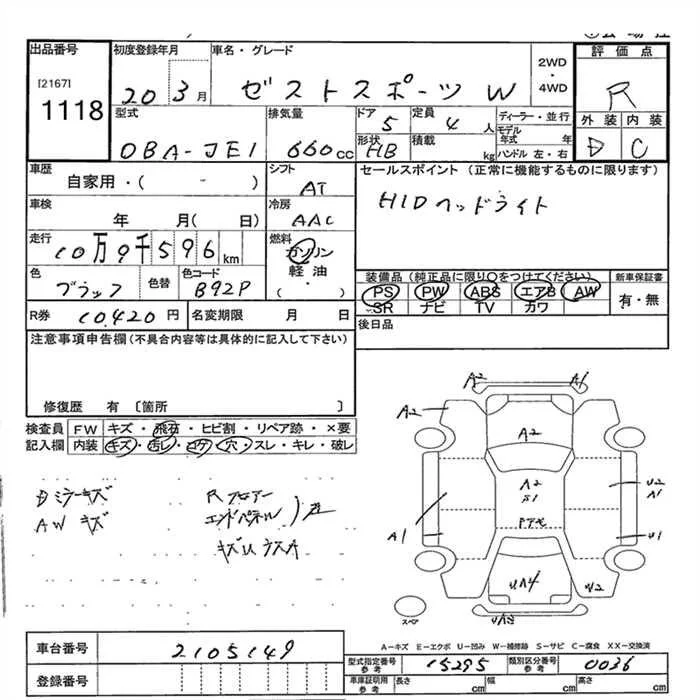 出品番号
[2167]
1118
初度登録年月
20 3月
車名・グレード
ゼストスポーツ W
2WD
・
4WD
評価点
R
外装 内装
D C
型式
DBA-JE1
排気量
660CC
ドア
5
定員
4人
形状
HB
積載
kg
ディーラー・並行
モデル
年式 年
ハンドル 左・右
車歴
自家用・( - )
シフト
AT
セールスポイント (正常に機能するものに限ります)
HIDヘッドライト
車検
年 月( 日)
冷房
AAC
走行
10万9千596km
燃料
ガソリン
軽油
・( )
色
ブラック
色替
色コード
B92P
装備品 (純正品に限り○をつけてください)
PS PW ABS エアB AW
SR ナビ TV カワ
新車保証書
有・無
R券 10,420円
名変期限 月 日
後日品
注意事項申告欄(不具合内容等は具体的に記入して下さい)
修復歴 有 〔箇所 〕
検査員 FW キズ・飛石・ヒビ割・リペア跡・×要
記入欄 内装 キズ・汚レ・コゲ・穴・スレ・キレ・破レ
Dミラーキズ
AW キズ
Rフロアー
エンドパネル
キズU
A2 A1
A2
A2
A2
S1
U2
A1
A1
U1
UA4
U2
スペア
A-キズ E-エクボ U-凹み W-補修跡 S-サビ C-腐食 XX-交換済
車台番号
2105149
登録番号
型式指定番号
参考
15295
類別区分番号
参考
0036
車庫証明用
参考
長さ cm 幅 cm 高さ cm